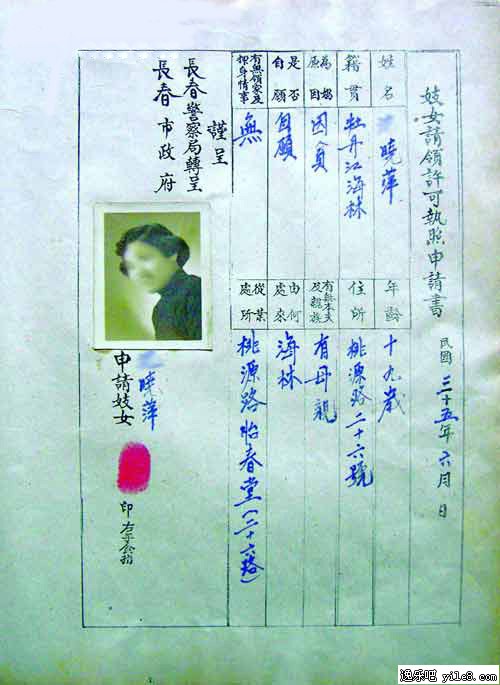 妓女請領許可執照申請書
民國三十五年六月 日
姓名
曉萍
年齡
十九歲
籍貫
牡丹江海林
住所
桃源路二十六號
為娼原因
因貧
有無本夫及親族
有母親
是否自願
自願
由何處來
海林
有無領家及押身情事
無
從業處所
桃源路怡春堂(二十六路)
謹呈
長春警察局轉呈
長春市政府
申請妓女
曉萍
印
右手食指
逸乐吧 yile8.com